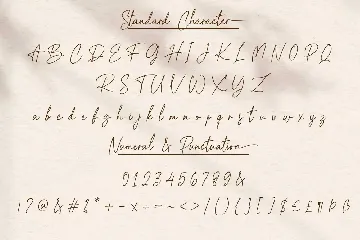 Standard Character
A B C D E F G H I J K L M N O P Q
R S T U V W X Y Z
a b c d e f g h i j k l m n o p q r s t u v w x y z
Numeral & Punctuation
0123456789&
! ? @ & # $ * ÷ - x - = ~ < > / ( ) { } [ ] $ € £